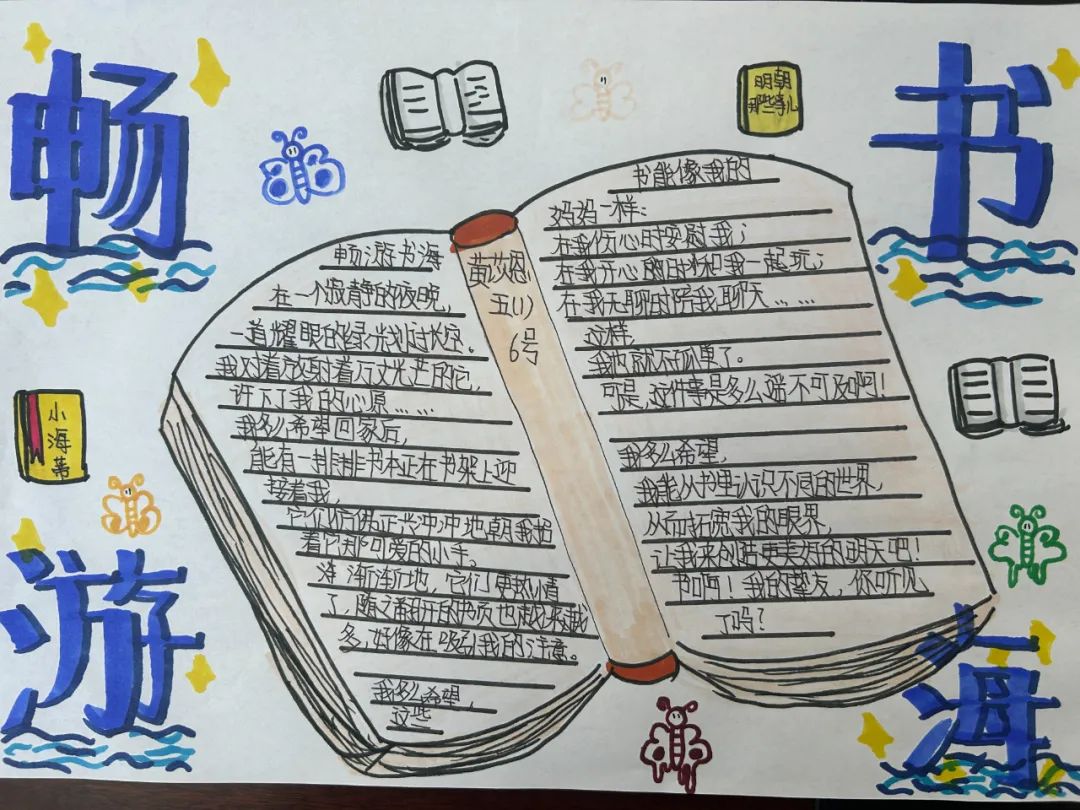 畅
游
书
海
明朝
那些事儿
小
海
蒂
黄
恩
五(1)
6号
畅游书海
在一个寂静的夜晚，
一道耀眼的绿光划过长空。
我对着放射着万丈光芒的它，
许下了我的心愿……
我多么希望回家后，
能有一排排书本正在书架上迎
接着我，
它们仿佛正兴冲冲地朝我招
着它那可爱的小手。
渐渐地，它们更热情
了，随之翻开的书页也越来越
多，好像在吸引我的注意。
我多么希望，
这些
书能像我的
妈妈一样：
在我伤心时安慰我；
在我开心的时候和我一起玩；
在我无聊时陪我聊天……
这样，
我也就不孤单了。
可是，这件事是多么遥不可及啊！
我多么希望，
我能从书里认识不同的世界，
从而拓宽我的眼界，
让我来创造更美好的明天吧！
书啊！我的挚友，你可听见
了吗？